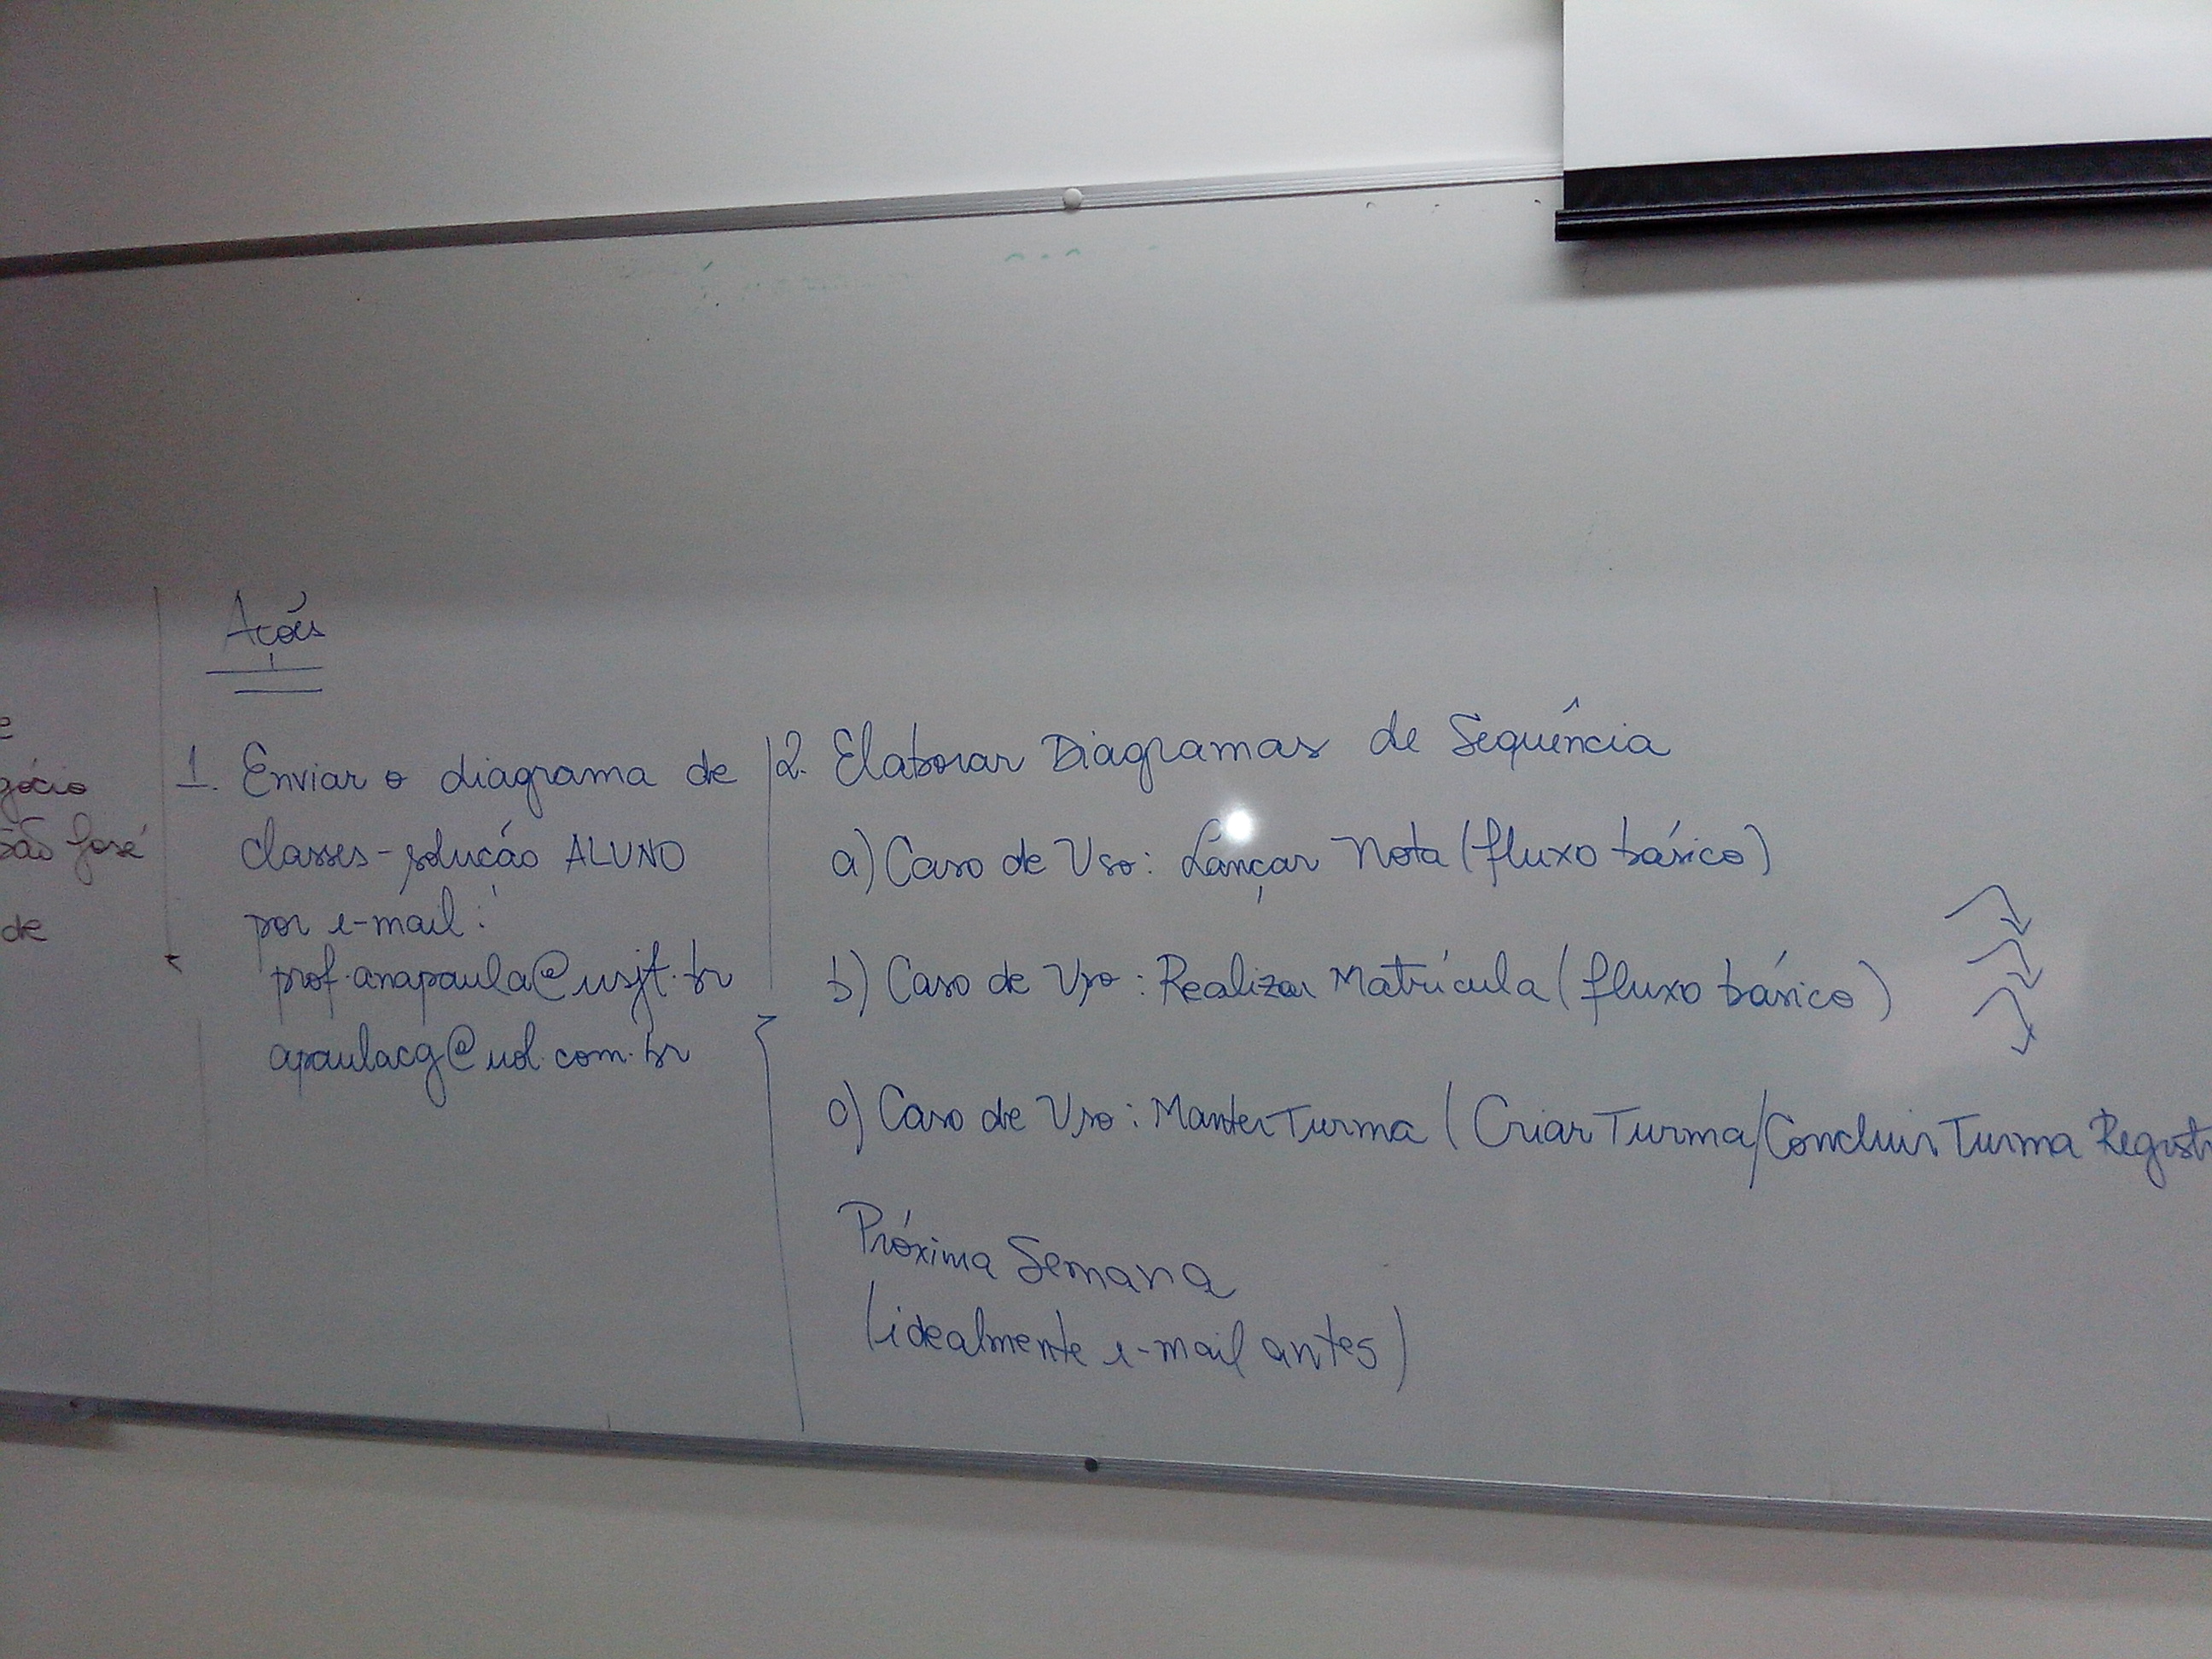 e
gócio
São José
de
Ações
1. Enviar o diagrama de
classes-solução ALUNO
por e-mail:
prof.anapaula@usjt.br
apaulacg@uol.com.br
2. Elaborar Diagramas de Sequência
a) Caso de Uso: Lançar Nota (fluxo básico)
b) Caso de Uso: Realizar Matrícula (fluxo básico)
c) Caso de Uso: Manter Turma (Criar Turma/Concluir Turma Registr
Próxima Semana
(idealmente e-mail antes)